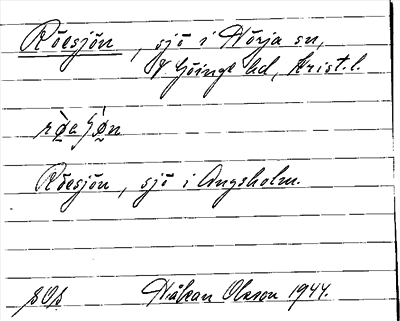 Röesjön, sjö i Nörja sn,
V. Göinge hd, Krist. l.
Röesjön, sjö i Ängsholm.
SOS Håkan Olsson 1944.